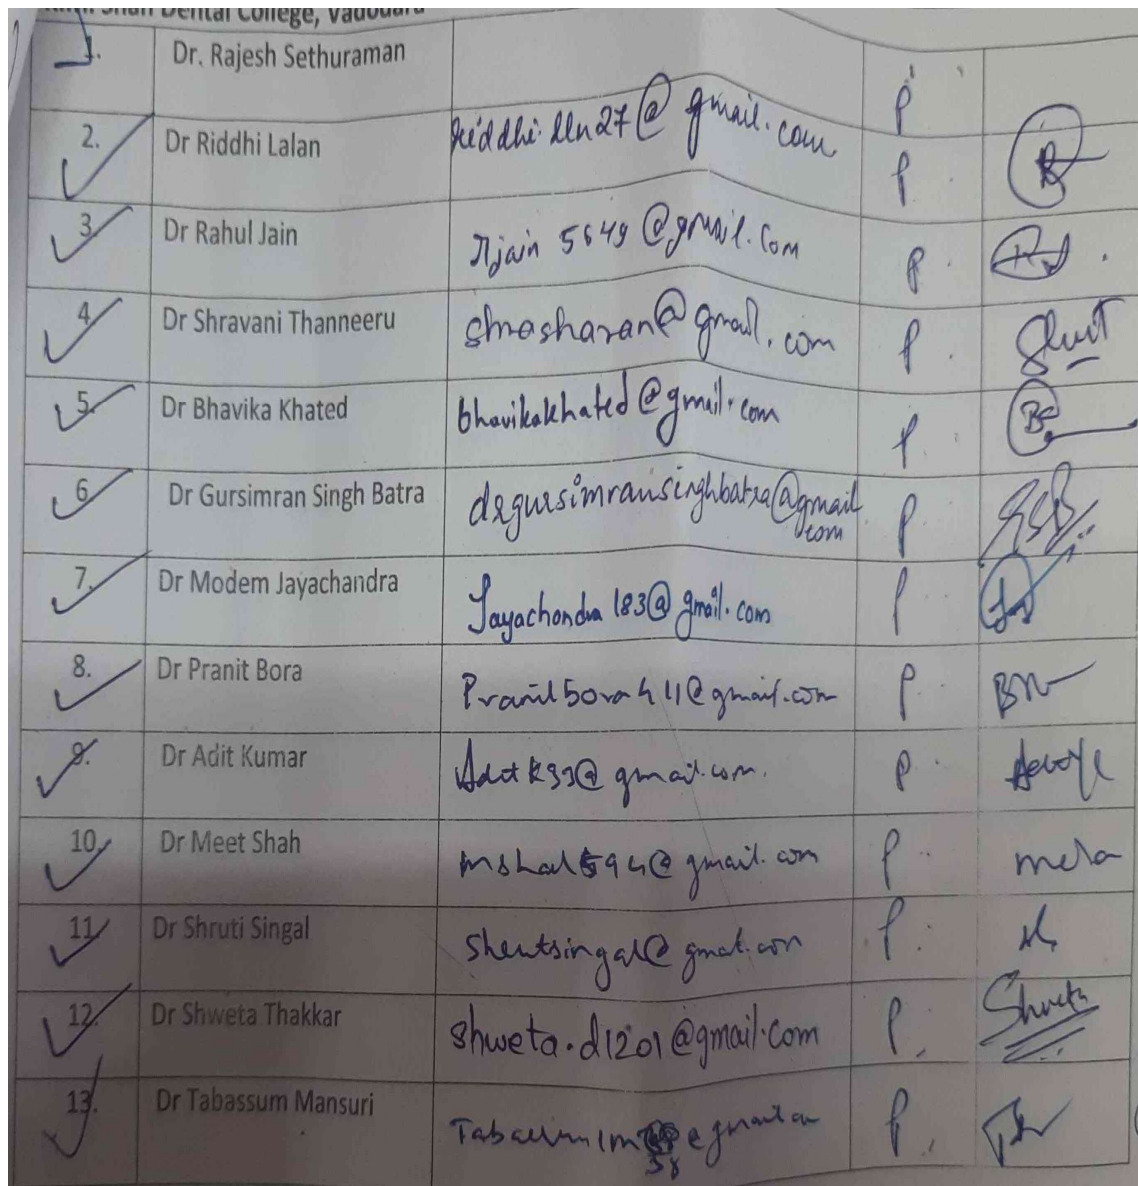 Shah Dental College, Vadodara
1. Dr. Rajesh Sethuraman P
2. Dr Riddhi Lalan riddhi.lln27@gmail.com P
3. Dr Rahul Jain rjain5649@gmail.com P
4 Dr Shravani Thanneeru P
5. Dr Bhavika Khated bhavikakhated@gmail.com P
6 Dr Gursimran Singh Batra drgursimransinghbatra@gmail P GSB
com
7. Dr Modem Jayachandra Jayachandra183@gmail.com P
8. Dr Pranit Bora Pranitbora411@gmail.com P
9. Dr Adit Kumar Aditk33@gmail.com. P
10. Dr Meet Shah P
11. Dr Shruti Singal P
12. Dr Shweta Thakkar shweta.d1201@gmail.com P Shweta
13. Dr Tabassum Mansuri P